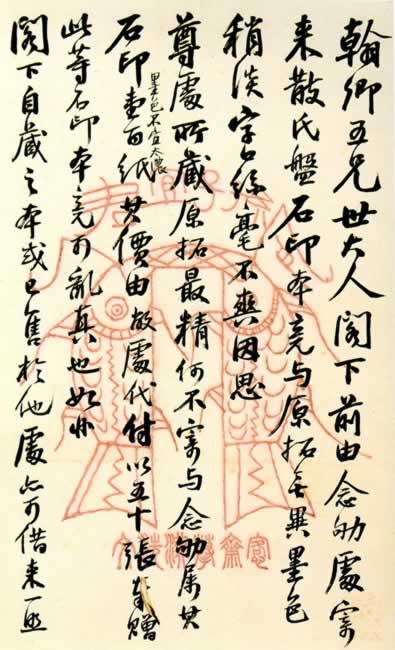 翰卿五兄世大人閣下前由念劬處寄
来散氏盤石印本竟与原拓無異墨色
稍淡字絲毫不爽因思
尊處所藏原拓最精何不寄与念劬属其
石印壹百紙墨色不宜太濃其價由敝處代付以五十張奉贈
此等石印本竟可亂真也如非
閣下自藏之本或已售於他處亦可借来一